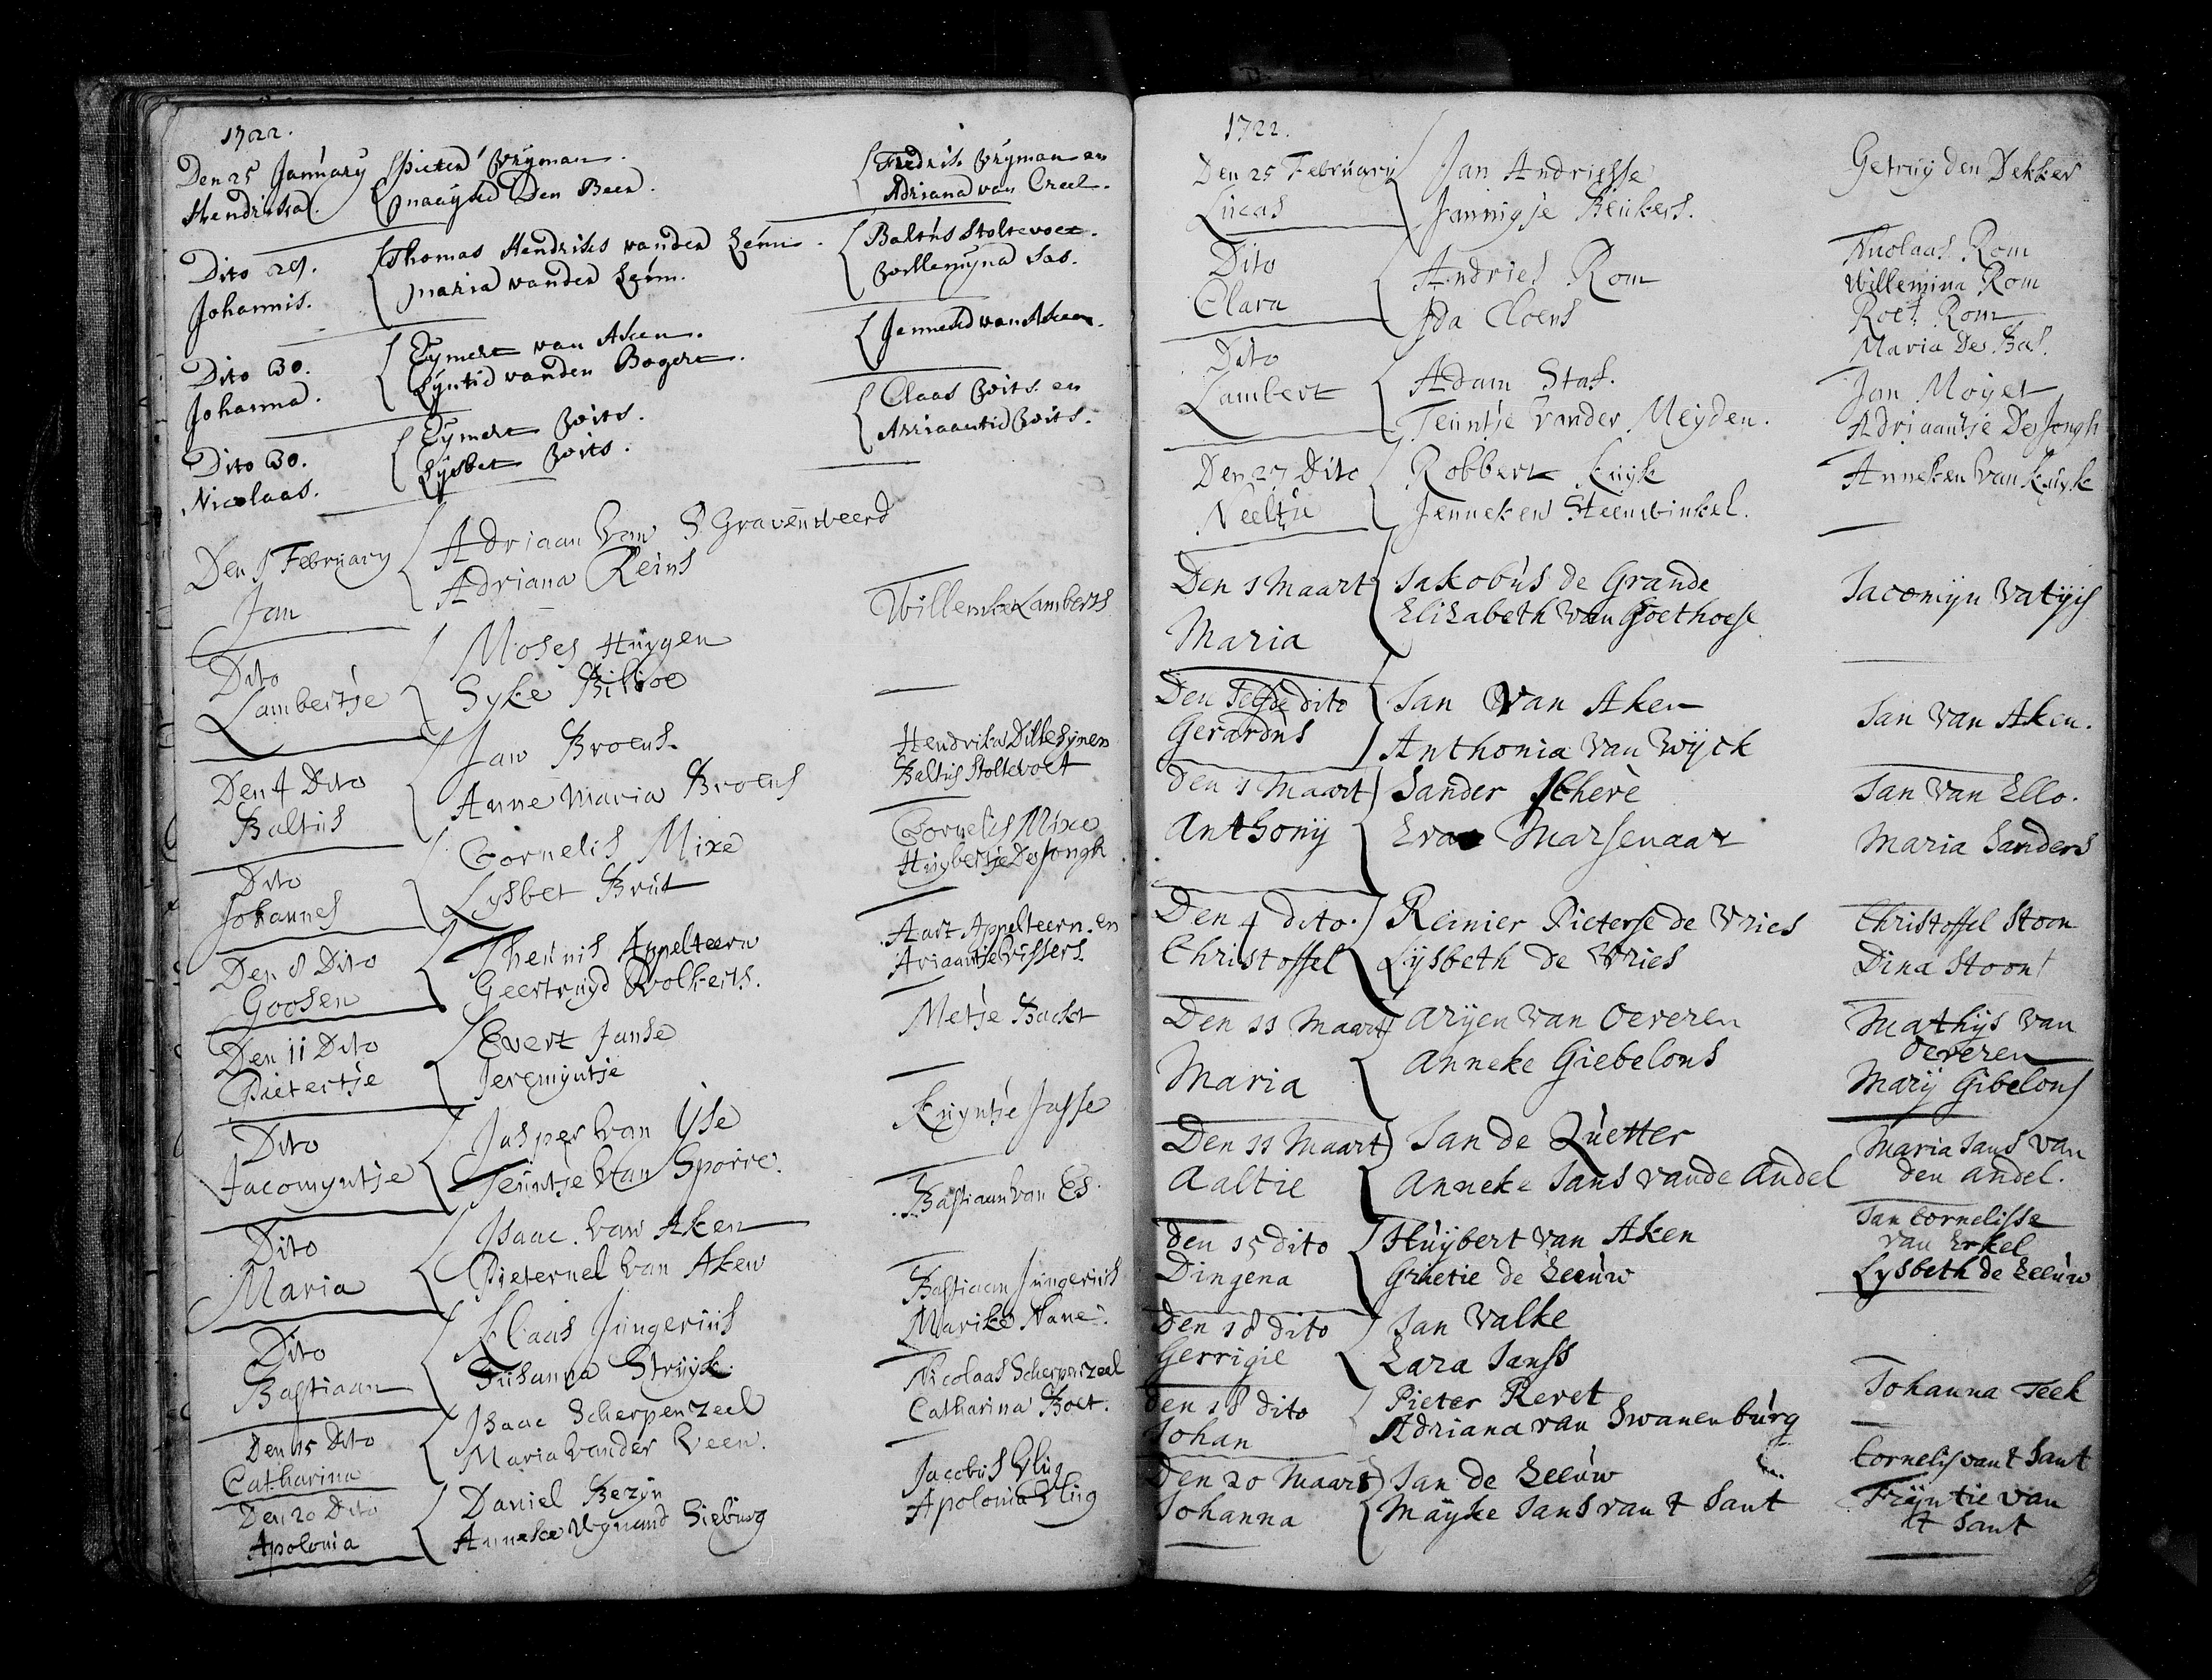 1722.
Den 25 January Pieter Vryman.
Hendrika. Maayke Den Beer.
Fredrik Vryman en
Adriana van Creel.
Dito 29. Thomas Hendriks vander Leun.
Johannis. Maria vander Leun.
Baltus Stoltevoet.
Willemyna Sas.
Dito 30. Eymert van Aken.
Johanna. Lyntie vanden Bogert.
Jenneke van Aken.
Dito 30. Eymert Vvits.
Nicolaas. Lysbet Vvits.
Claas Vvits en
Arriaantie Vvits.
Den 1 February Adriaan Van S Gravenweerd
Jan Adriana Reins
Willemke Lamberts
Dito Moses Huygen
Lambertje Syke
Den 4 Dito Jan Broens.
Baltus Anne Maria Broens
Hendrika
Baltus Stoltevoet
Dito Cornelis Mixe
Johannes Lysbet Brut
Cornelis Mixe
Huybertje De Jongh
Den 8 Dito Theunis Appelteern
Goosen Geertruyd Volkerts.
Aart Appelteern en
Ariaantje Vissers
Den 11 Dito Evert Janse
Pietertje Jeremyntje
Metje
Dito Jasper Van Yse
Jacomyntje Teuntje Van Sporre.
Kuyntje Jasse
Dito Isaac Van Aken
Maria Pieternel Van Aken
Bastiaan Van Es
Dito Klaas Jungerius
Bastiaan Susanna Struyk.
Bastiaan Jungerius
Marike
Den 15 Dito Isaac Scherpenzeel
Catharina Maria Vander Veen.
Nicolaas Scherpenzeel
Catharina Boet.
Den 20 Dito Daniel Bezyn
Apolonia Anneke Wynand Sieburg
Jacobus Vlug
Apolonia Vlug
1722.
Den 25 February Jan Andriesse
Lucas Jannigje Beukers.
Getruy den Dekker
Dito Andries Rom
Clara Ida Cloens
Nicolaas Rom
Willemina Rom
Roet Rom
Maria De Bas.
Dito Adam Stas.
Lambert Teuntje Vander Meyden.
Jan Moyet
Adriaantje De Jongh
Den 27 Dito Robbert Kuyk
Neeltje Jenneken Steenwinkel.
Anneken Van Kuyk
Den 1 Maart Jakobus de Grande
Maria Elizabeth Van Goethoese
Jacomijn Vatyis
Den selfde dito Jan Van Aken
Gerardus Anthonia Van Wijck
Jan Van Aken.
Den 1 Maart Sander Scherè
Anthonij Eva Marsenaar
Jan Van Ello.
Maria Sanders
Den 4 dito. Reinier Pieterse de Vries
Christoffel Lijsbeth de Vries
Christoffel Stoon
Dina Stoon
Den 11 Maart Arijen Van Oeveren
Maria Anneke Giebelons
Mathijs Van
Oeveren
Marij Gibelons
Den 11 Maart Jan de Quetter
Aaltie Anneke Jans vande Andel
Maria Jans Van
den Andel.
Den 15 dito Huijbert Van Aken
Dingena Grietie de Leeuw
Jan Cornelisse
Van Erkel
Lysbeth de Leeuw
Den 18 dito Jan Valke
Gerrigie Zara Janss
Den 18 dito Pieter Revet
Johan Adriana van Swanenburg
Johanna Teek
Den 20 Maart Jan de Leeuw
Johanna Maijke Jans van t Sant
Cornelis van t Sant
Trijntie van
t Sant